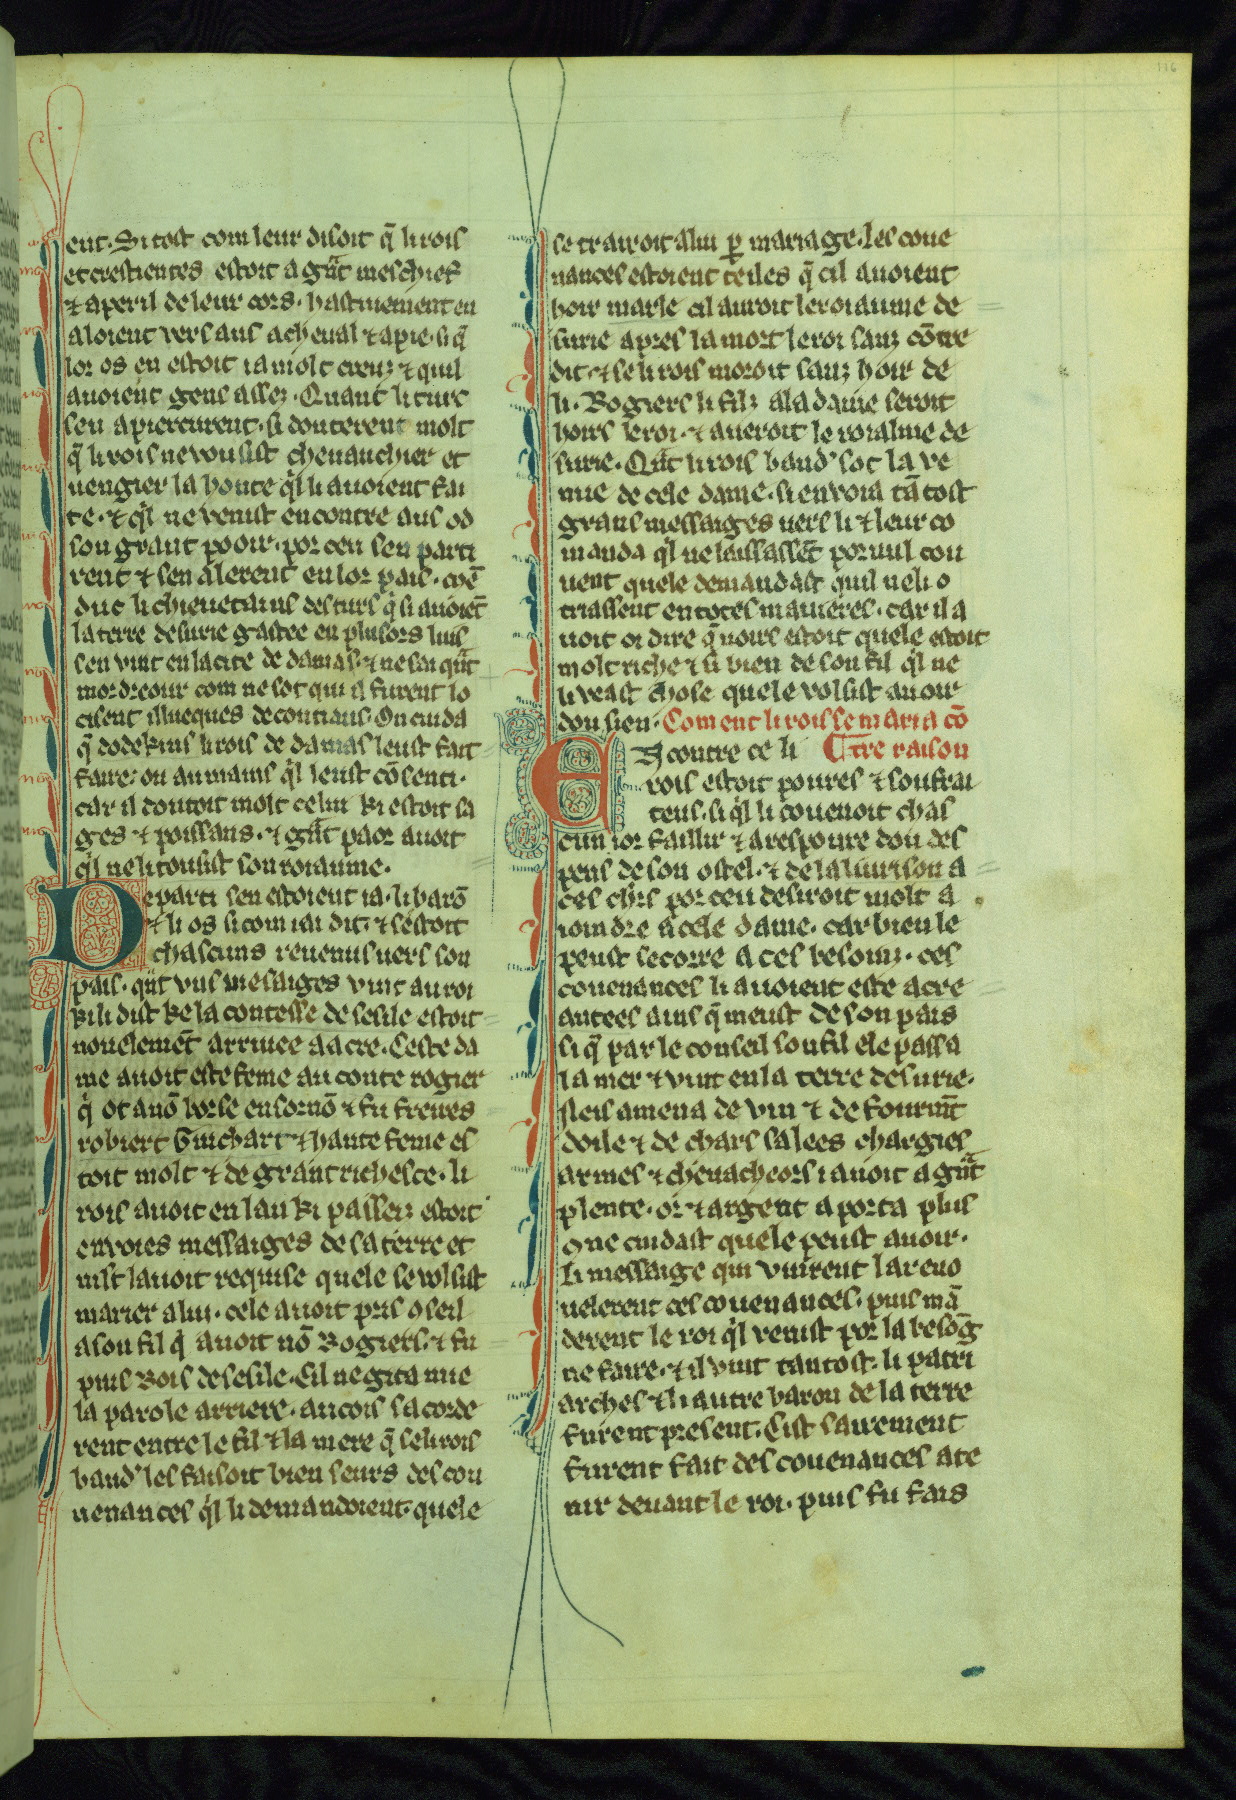 ent. Si tost com leur disoit q̄ li rois
et crestientes estoit a gn̄t meschief
⁊ a peril de leur cors. hastiuement en
aloient vers aus a cheual ⁊ a pie. si q̄
lor os en estoit ia molt creuz ⁊ quil
auoient gens assez. Quant li turc
sen apiercurent. si douterent molt
q̄ li rois ne vousist cheuauchier et
uengier la honte q̄l li auoient fai
te. ⁊ q̄l ne venist encontre aus od
son grant pooir. por ceu sen parti
rent ⁊ sen alerent en lor païs.
duc li chieuetains des turs q̄ si auoiēt
la terre de surie gastee en plusors lius
sen vint en la cite de damas. ⁊ ne sai qn̄t
mordreour com ne sot qui il furent lo
cisent illueques de coutiaus. On cuida
q̄ dodekins li rois de damas leust fait
faire. ou au mains q̄l leust cōsenti.
car il doutoit molt celui ki estoit sa
ges ⁊ poissans. ⁊ gn̄t paor auoit
q̄l ne li tousist son roiaume.
Departi sen estoient ia. li barō
⁊ li os si com iai dit. ⁊ sestoit
chascuns reuenus uers son
païs. qn̄t vns mesaiges vint au roi
ki li dist ke la contesse de sesile estoit
nouelemēt arriuee a acre. Ceste da
me auoit este feme au conte rogier
q̄ ot a nō borse en sornō ⁊ fu freres
robiert Guichart ⁊ haute feme es
toit molt ⁊ de grant richesce. li
rois auoit en lan ki passez estoit
enuoies messaiges de sa terre et
mst lauoit requise quele se volsist
marier a lui. cele auoit pris ɔseil
a son fil q̄ auoit nō Rogiers. ⁊ fu
puis Rois de sesile. Cil ne gita mie
la parole arriere. ancois sacorde
rent entre le fil ⁊ la mere q̄ se li rois
baud' les faisoit bien seurs des cou
uenances q̄l li demandoient. quele
se trairoit a lui ꝑ mariage. les coue
nances estoient teiles q̄ cil auoient
hoir marle cil auroit le roiaume de
surie apres la mort le roi sanz cōtre
dit. ⁊ se li rois moroit sanz hoir de
li. Rogiers li filz a la dame seroit
hoirs le roi. ⁊ aueroit le roialme de
surie. Qn̄t li rois baud' sot la ve
nue de cele dame. si enuoia tātost
grans messaiges uers li ⁊ leur co
manda q̄l ne laissassēt por nul con
uent quele demandast quil ne li o
triassent en totes manieres. car il a
uoit oi dire q̄ uoirs estoit quele estoit
molt riche ⁊ si bien de son fil q̄l ne
li veast chose quele volsist auoir
dou sien. Coment li rois se maria cō
Encontre ce li tre raison
rois estoit poures ⁊ soufrai
teus. si q̄l li couenoit chas
cun ior faillir ⁊ a respoure dou des
pens de son ostel. ⁊ de la liurison a
ces chr̄s por ceu desiroit molt a
ioindre a cele dame. car bien le
peust secorre a ces besoins. ces
couenances li auoient este acre
antees ains q̄ meust de son païs
si q̄ par le conseil son fil ele passa
la mer ⁊ vint en la terre de surie.
Neis amena de vin ⁊ de fourmēt
doile ⁊ de chars salees chargies
armes ⁊ cheuacheors i auoit a gn̄t
plente. or ⁊ argent aporta plus
q̄ne cuidast quele peust auoir.
li messaige qui vinrent la reno
uelerent ces couenances. puis mā
derent le roi q̄l venist por la besōg
ne faire. ⁊ il vint tantost. li patri
arches ⁊ li autre baron de la terre
furent present. Cist sairement
furent fait des couenances ate
nir deuant le roi. puis fu fais
116